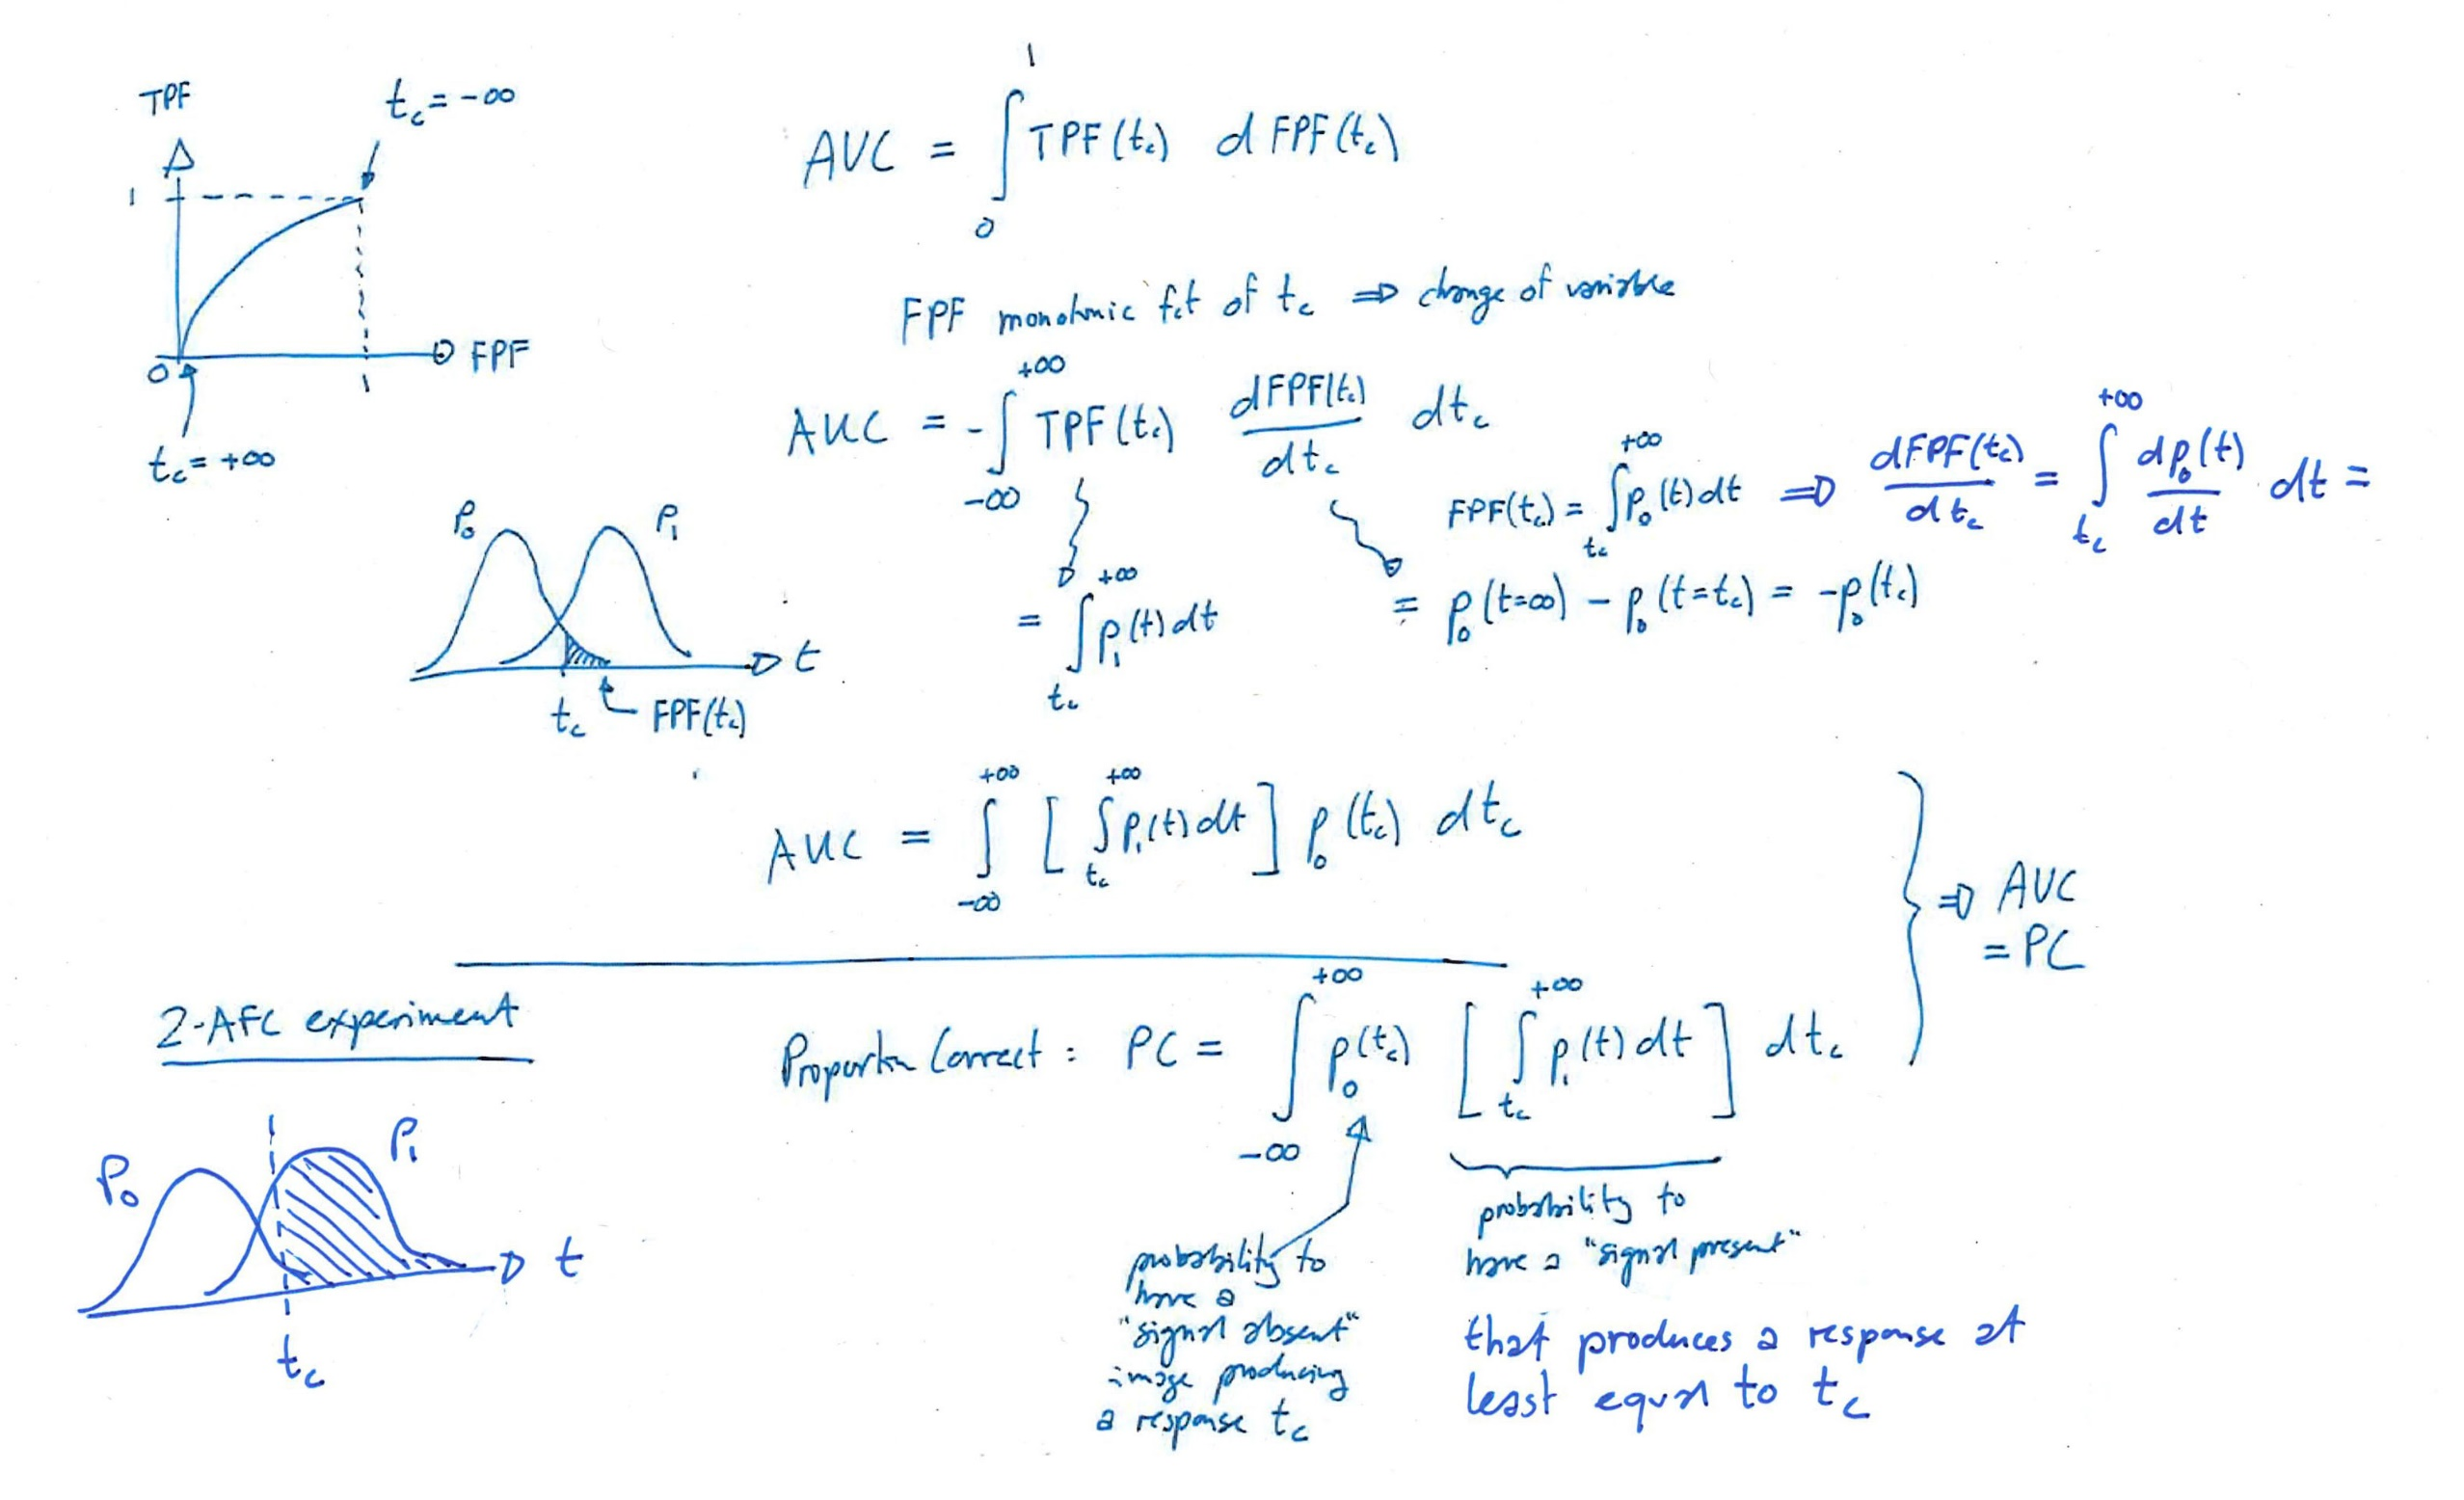 TPF
t_c = -∞
1
0
FPF
1
t_c = +∞
AUC = ∫_0^1 TPF(t_c) d FPF(t_c)
FPF monotonic fct of t_c ⇒ change of variable
AUC = -∫_{-∞}^{+∞} TPF(t_c) dFPF(t_c)/dt_c dt_c
FPF(t_c) = ∫_{t_c}^{+∞} p_0(t) dt ⇒ dFPF(t_c)/dt_c = ∫_{t_c}^{+∞} dp_0(t)/dt dt =
= ∫_{t_c}^{+∞} p_1(t) dt
= p_0(t=∞) - p_0(t=t_c) = -p_0(t_c)
P_0
P_1
t
t_c
FPF(t_c)
AUC = ∫_{-∞}^{+∞} [ ∫_{t_c}^{+∞} p_1(t) dt ] p_0(t_c) dt_c
⇒ AUC
= PC
2-AFC experiment
Proportion Correct : PC = ∫_{-∞}^{+∞} p_0(t_c) [ ∫_{t_c}^{+∞} p_1(t) dt ] dt_c
P_0
P_1
t
t_c
probability to
have a
"signal absent"
image producing
a response t_c
probability to
have a "signal present"
that produces a response at
least equal to t_c